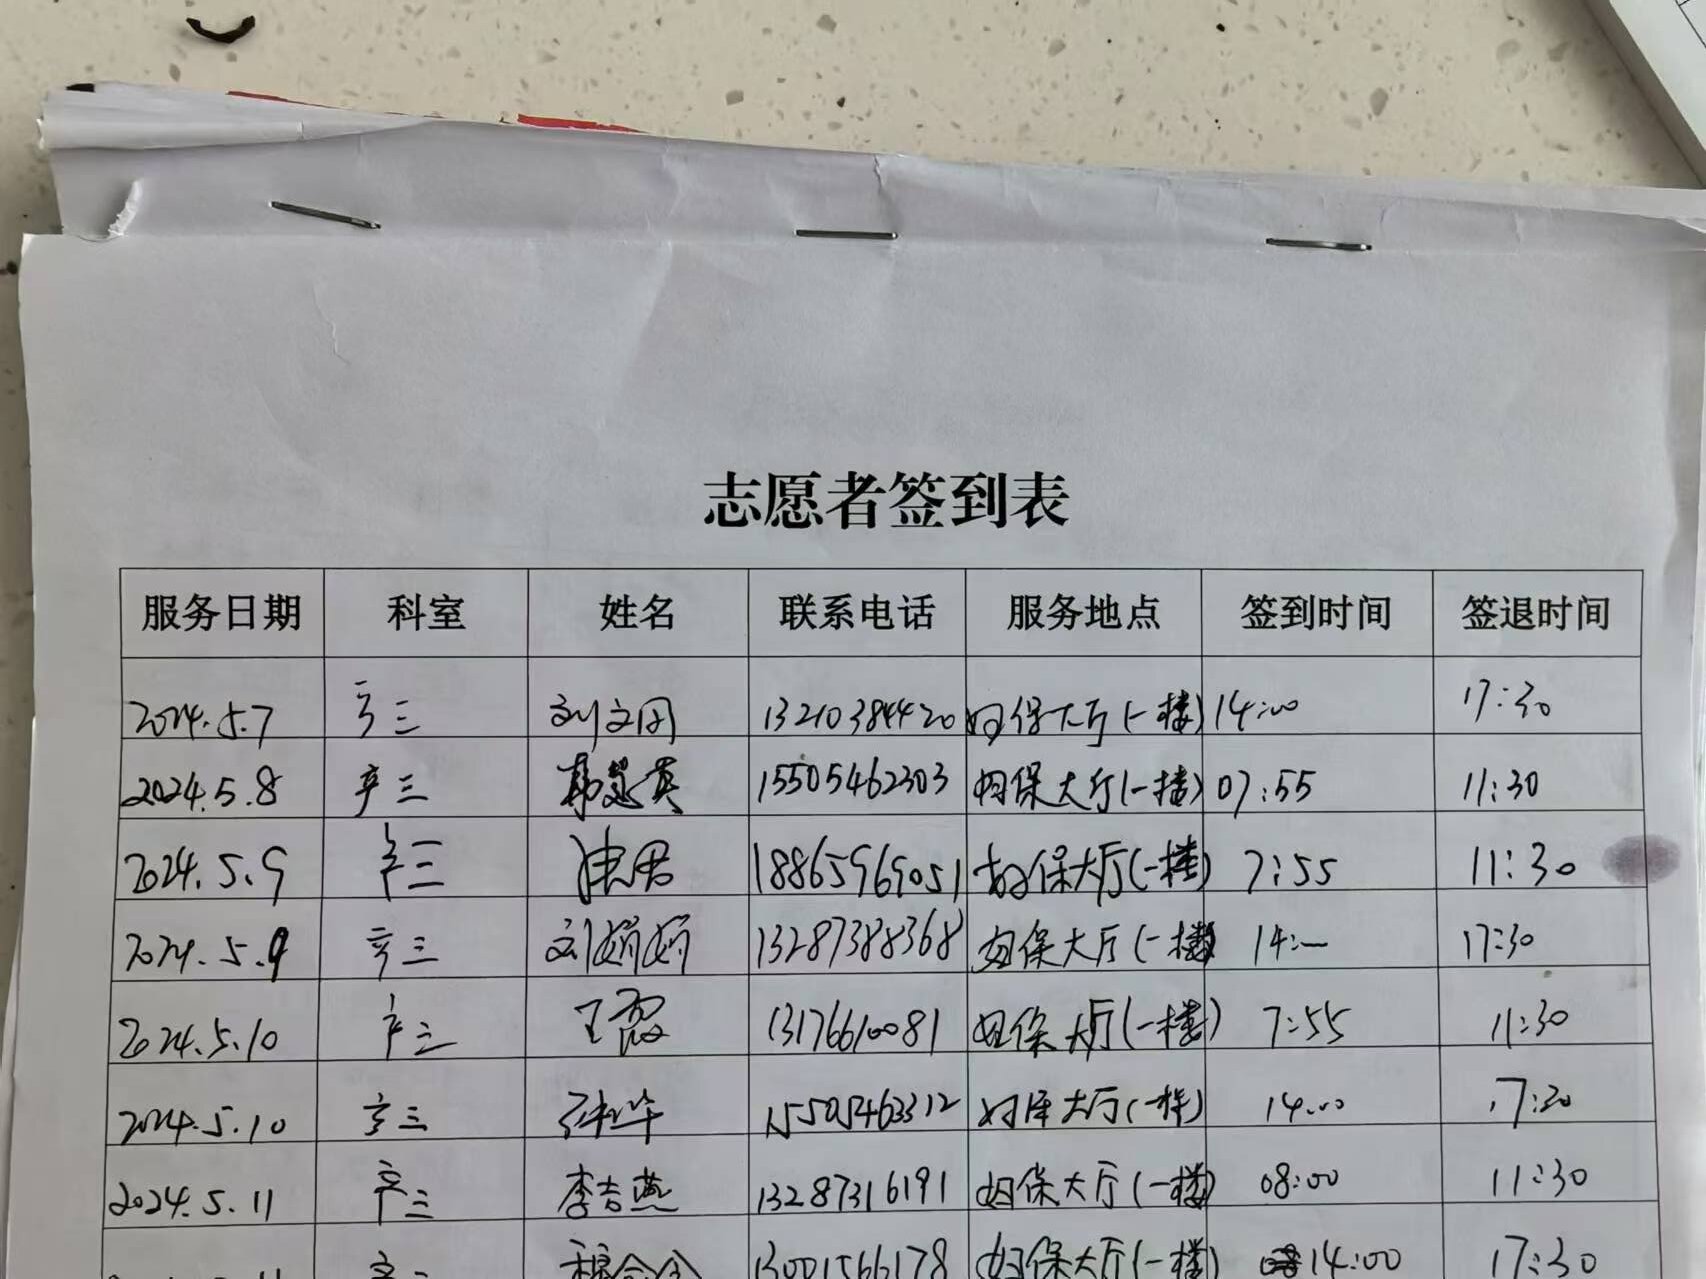 志愿者签到表
服务日期 科室 姓名 联系电话 服务地点 签到时间 签退时间
2024.5.7 三 刘文 13210384420 妇保大厅(一楼) 14:00 17:30
2024.5.8 三 15505462303 妇保大厅(一楼) 07:55 11:30
2024.5.9 三 18865969051 妇保大厅(一楼) 7:55 11:30
2024.5.9 三 刘娟娟 13287388368 妇保大厅(一楼) 14:— 17:30
2024.5.10 三 王霞 13176610081 妇保大厅(一楼) 7:55 11:30
2024.5.10 三 华 15505463312 妇保大厅(一楼) 14:00 17:30
2024.5.11 三 李吉燕 13287316191 妇保大厅(一楼) 08:00 11:30
13001566178 妇保大厅(一楼) 14:00 17:30